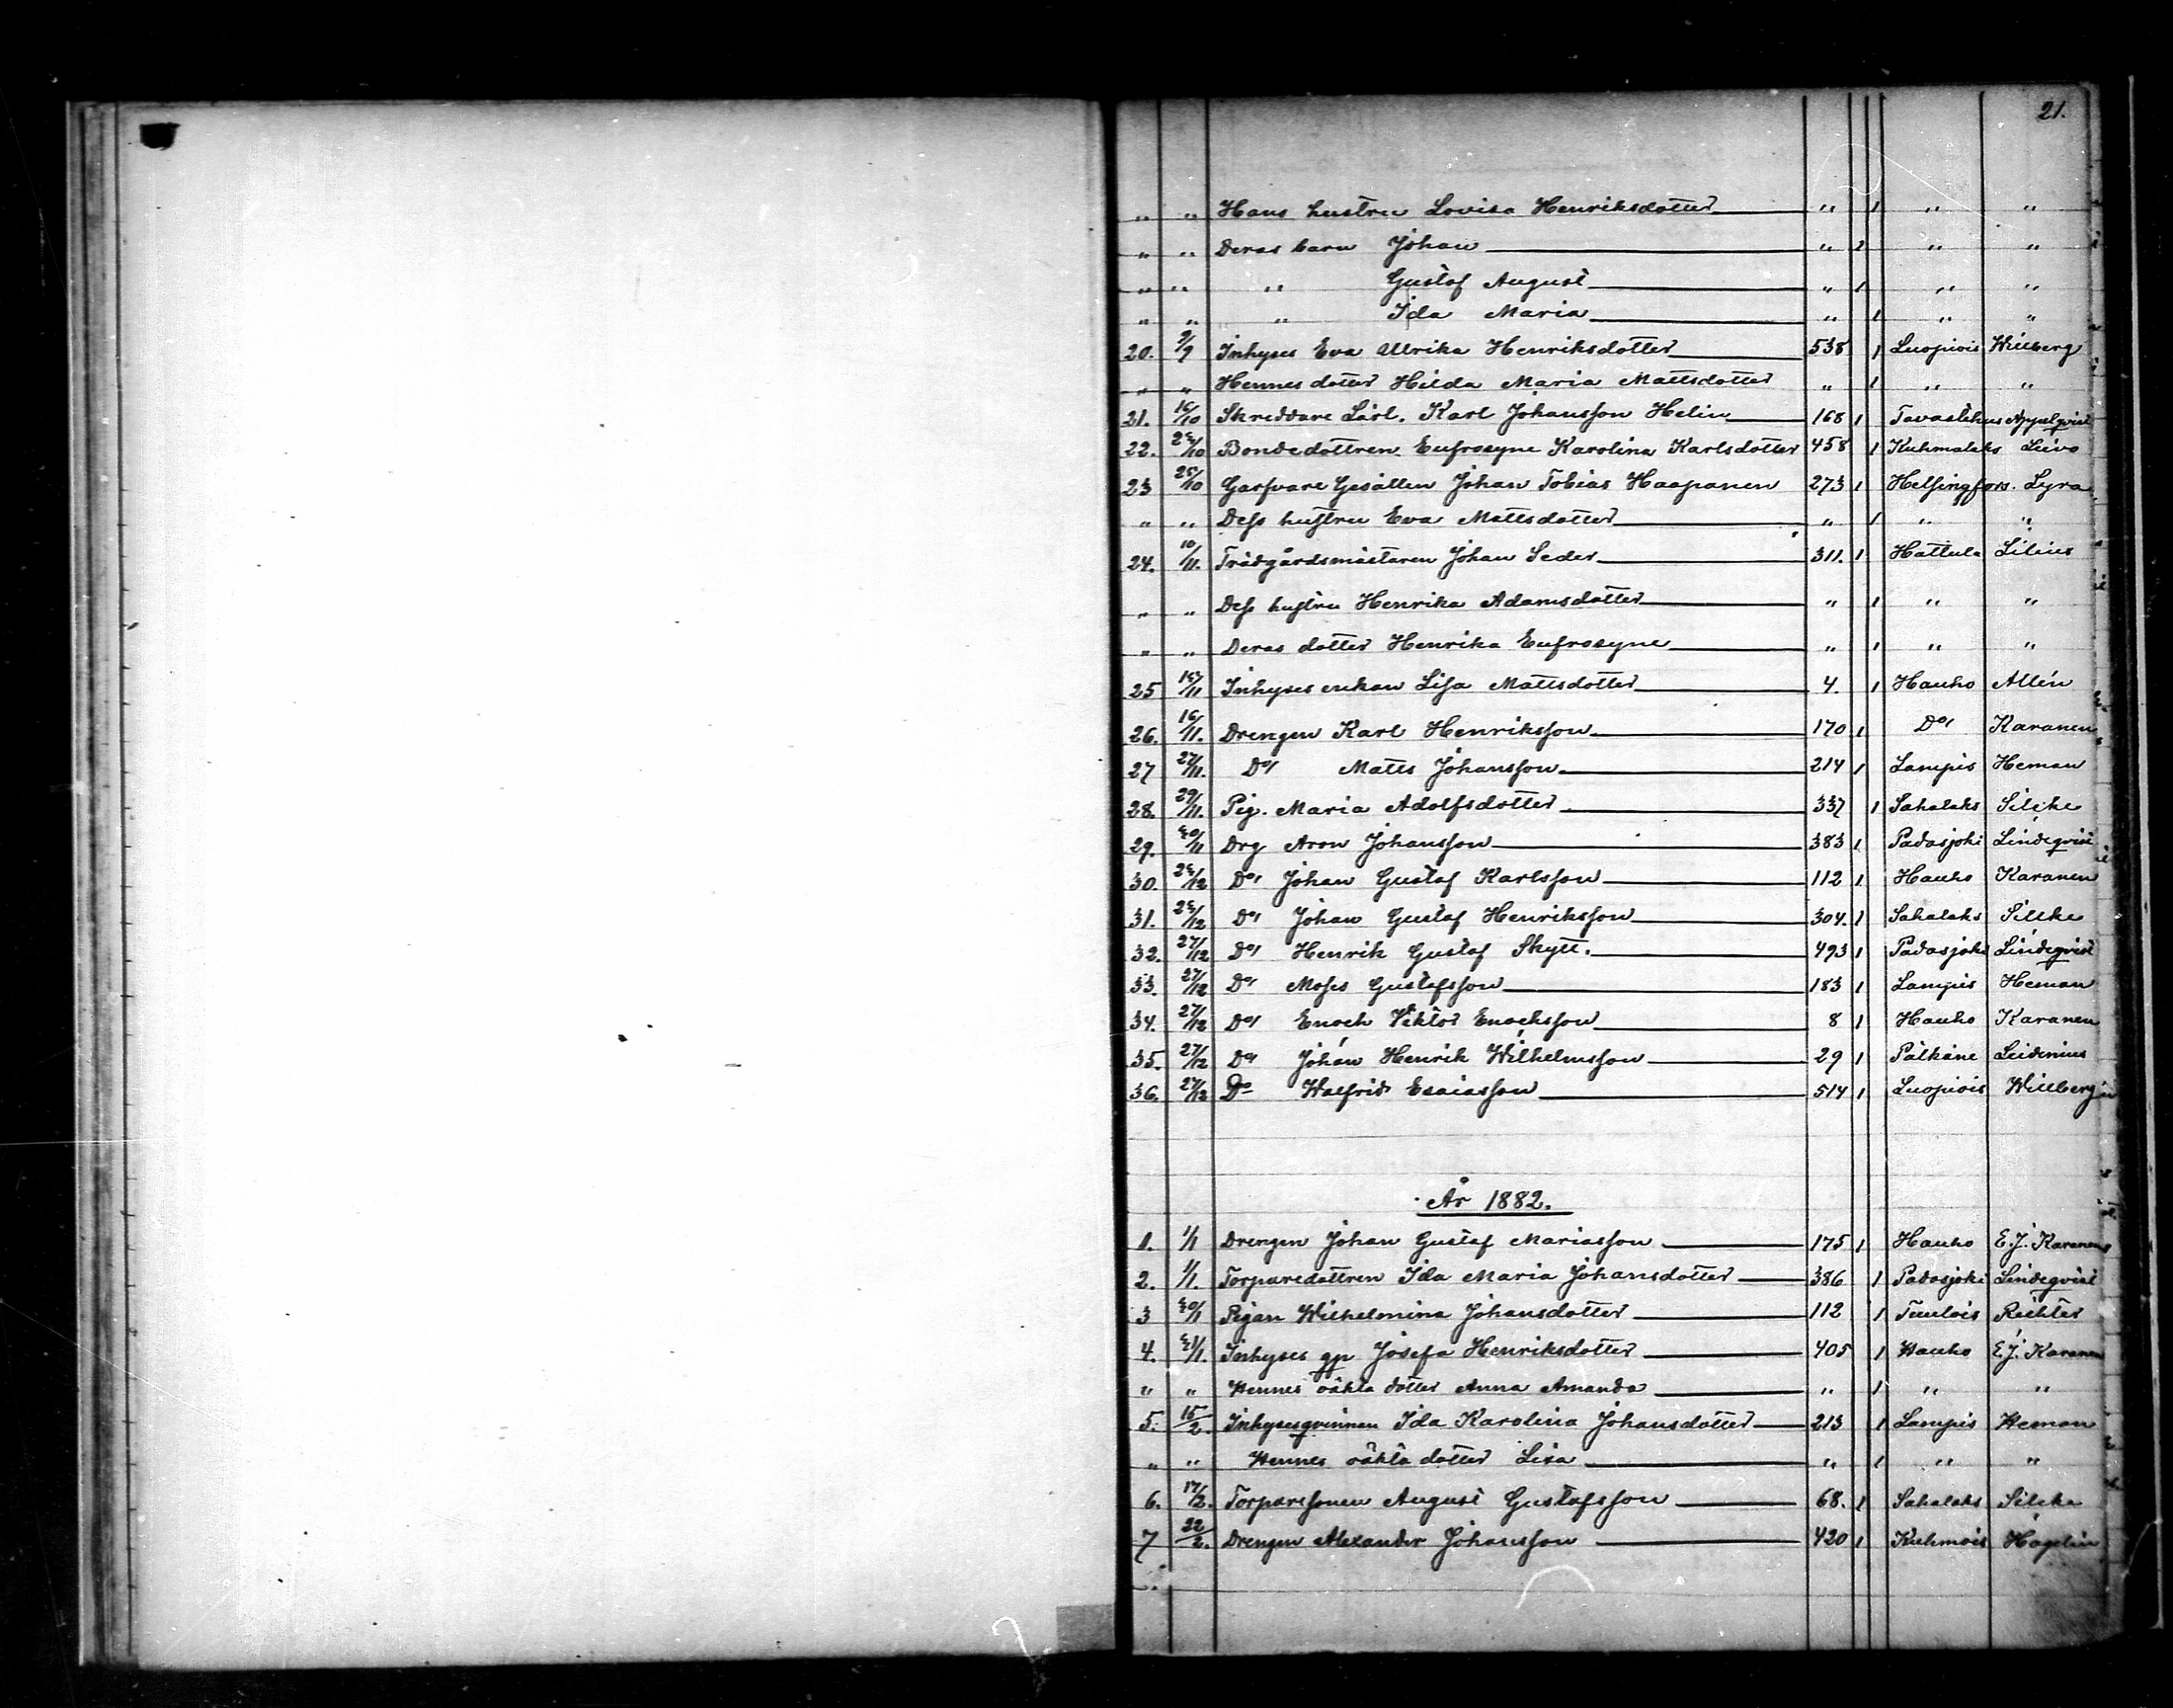 21.
" " Hans hustru Lovisa Henriksdotter " 1 " "
" " Deras barn Johan " 1 " "
" " " Gustaf August " 1 " "
" " " Ida Maria " 1 " "
20. 9/9 Inhyses Eva Ullrika Henriksdotter 538 1 Luopiois Willberg
" " Hennes dotter Hilda Maria Mattsdotter " 1 " "
21. 16/10 Skreddare Lärl. Karl Johansson Helin 168 1 Tavastehus Appelqvist
22. 23/10 Bondedottren Eufrosyne Karolina Karlsdotter 458 1 Kuhmalaks Leivo
23 25/10 Garfvare Gesällen Johan Tobias Haapanen 273 1 Helsingfors. Lyra
" " Dess hustru Eva Mattsdotter " 1 " "
24. 10/11. Trädgårdsmästaren Johan Seder 311. 1 Hattula Lilius
" " Dess hustru Henrika Adamsdotter " 1 " "
" " Deras dotter Henrika Eufrosyne " 1 " "
25 15/11 Inhyses enkan Lisa Mattsdotter 4. 1 Hauho Allén
26. 16/11. Drengen Karl Henriksson 170 1 Do/ Karanen
27 27/11. Do/ Matts Johansson 214 1 Lampis Heman
28. 29/11. Pig. Maria Adolfsdotter 337 1 Sahalaks Silcke
29. 30/11 Drg Aron Johansson 383 1 Padasjoki Lindeqvist
30. 23/12 Do/ Johan Gustaf Karlsson 112 1 Hauho Karanen
31. 23/12 Do/ Johan Gustaf Henriksson 304. 1 Sahalaks Silcke
32. 27/12 Do/ Henrik Gustaf Skytt. 493 1 Padasjoki Lindeqvist
33. 27/12 Do/ Moses Gustafsson 183 1 Lampis Heman
34. 27/12 Do/ Enoch Viktor Enochsson 8 1 Hauho Karanen
35. 27/12 Do/ Johan Henrik Wilhelmsson 29 1 Pälkäne Leidenius
36. 27/12 Do Walfrid Esaiasson 514 1 Luopiois Willberg
År 1882.
1. 1/1 Drengen Johan Gustaf Mariasson 175 1 Hauho E.J. Karanen
2. 1/1. Torparedottren Ida Maria Johansdotter 386 1 Padasjoki Lindeqvist
3 30/1 Pigan Wilhelmina Johansdotter 112 1 Tuulois Richter
4. 31/1. Inhyses qp Josefa Henriksdotter 405 1 Hauho E.J. Karanen
" " Hennes oäkta dotter Anna Amanda " 1 " "
5. 15/2. Inhysesqvinnan Ida Karolina Johansdotter 213 1 Lampis Heman
" " Hennes oäkta dotter Lisa " 1 " "
6. 17/2. Torparesonen August Gustafsson 68. 1 Sahalaks Silcke
7 22/2. Drengen Alexander Johansson 420 1 Kuhmois Högelin